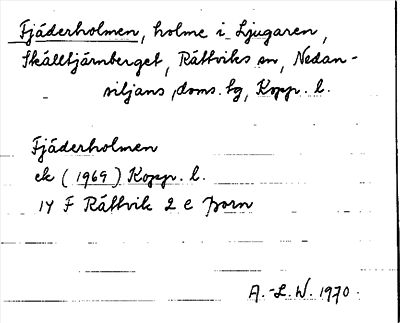 Fjäderholmen, holme i Ljugaren,
Skålltjärnberget, Rättviks sn, Nedan-
siljans doms. tg, Kopp. l.
Fjäderholmen
ek (1969) Kopp. l.
14 F Rättvik 2 e
A.-L. W. 1970.